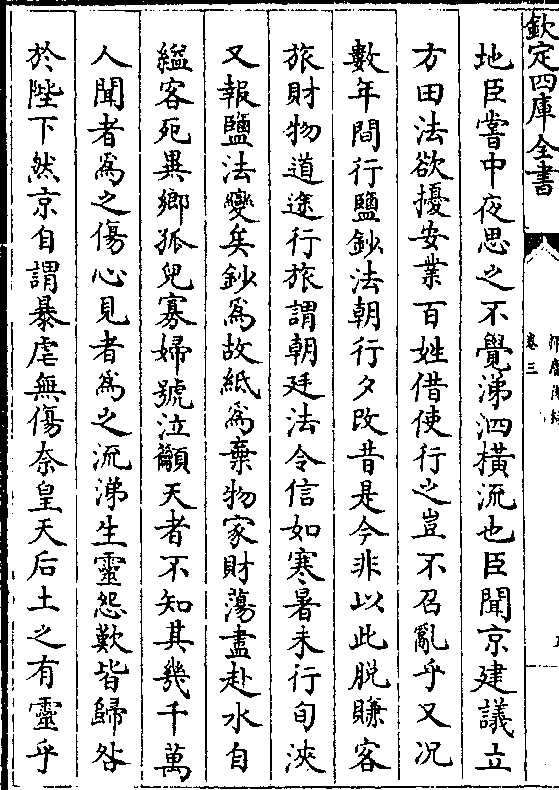 欽定四庫全書
卷三
地臣嘗中夜思之不覺涕泗橫流也臣聞京建議立
方田法欲擾安業百姓借使行之豈不召亂乎又況
數年間行鹽鈔法朝行夕改昔是今非以此脫賺客
旅財物道途行旅謂朝廷法令信如寒暑未行旬浹
又報鹽法變矣鈔為故紙為棄物家財蕩盡赴水自
縊客死異鄉孤兒寡婦號泣籲天者不知其幾千萬
人聞者為之傷心見者為之流涕生靈怨歎皆歸咎
於陛下然京自謂暴虐無傷奈皇天后土之有靈乎